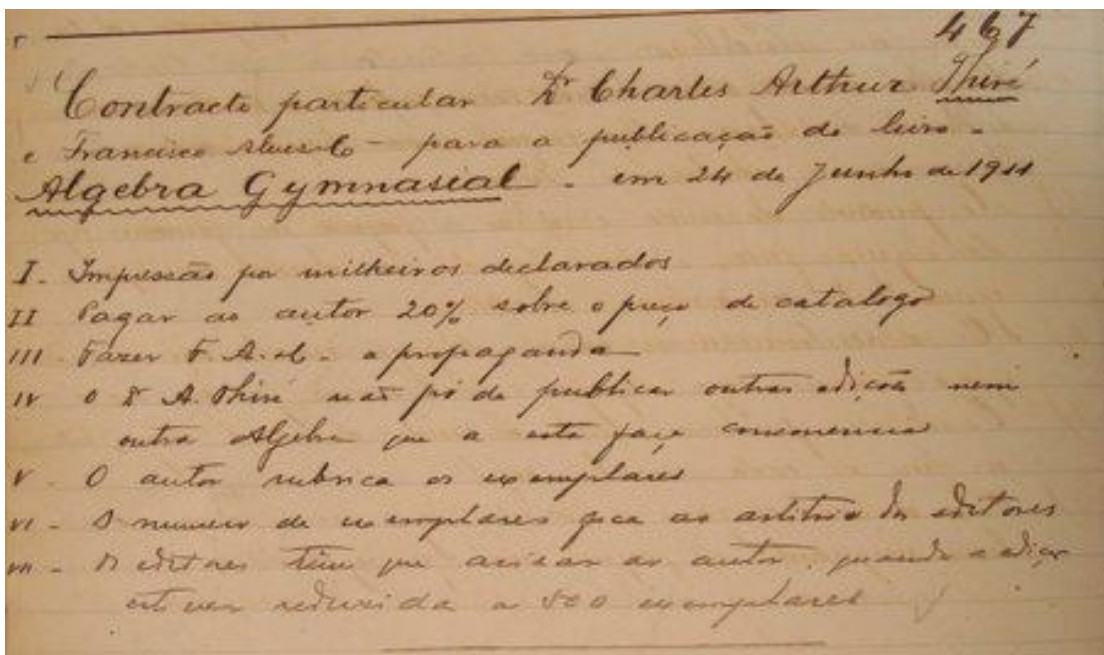 467
Contracto particular Dr Charles Arthur Thiré
e Francisco Alves & C para a publicação do livro -
Algebra Gymnasial - em 24 de Junho de 1911
I - Impressão por milheiros declarados
II Pagar ao autor 20% sobre o preço de catalogo
III - Fazer F. A. & C. a propaganda
IV O Dr A. Thiré não póde publicar outras edições nem
outra Algebra que a esta faça concorrencia
V - O autor rubrica os exemplares
VI - O numero de exemplares fica ao arbitrio dos editores
VII - Os editores têm que avisar ao autor, quando a edição
estiver reduzida a 500 exemplares